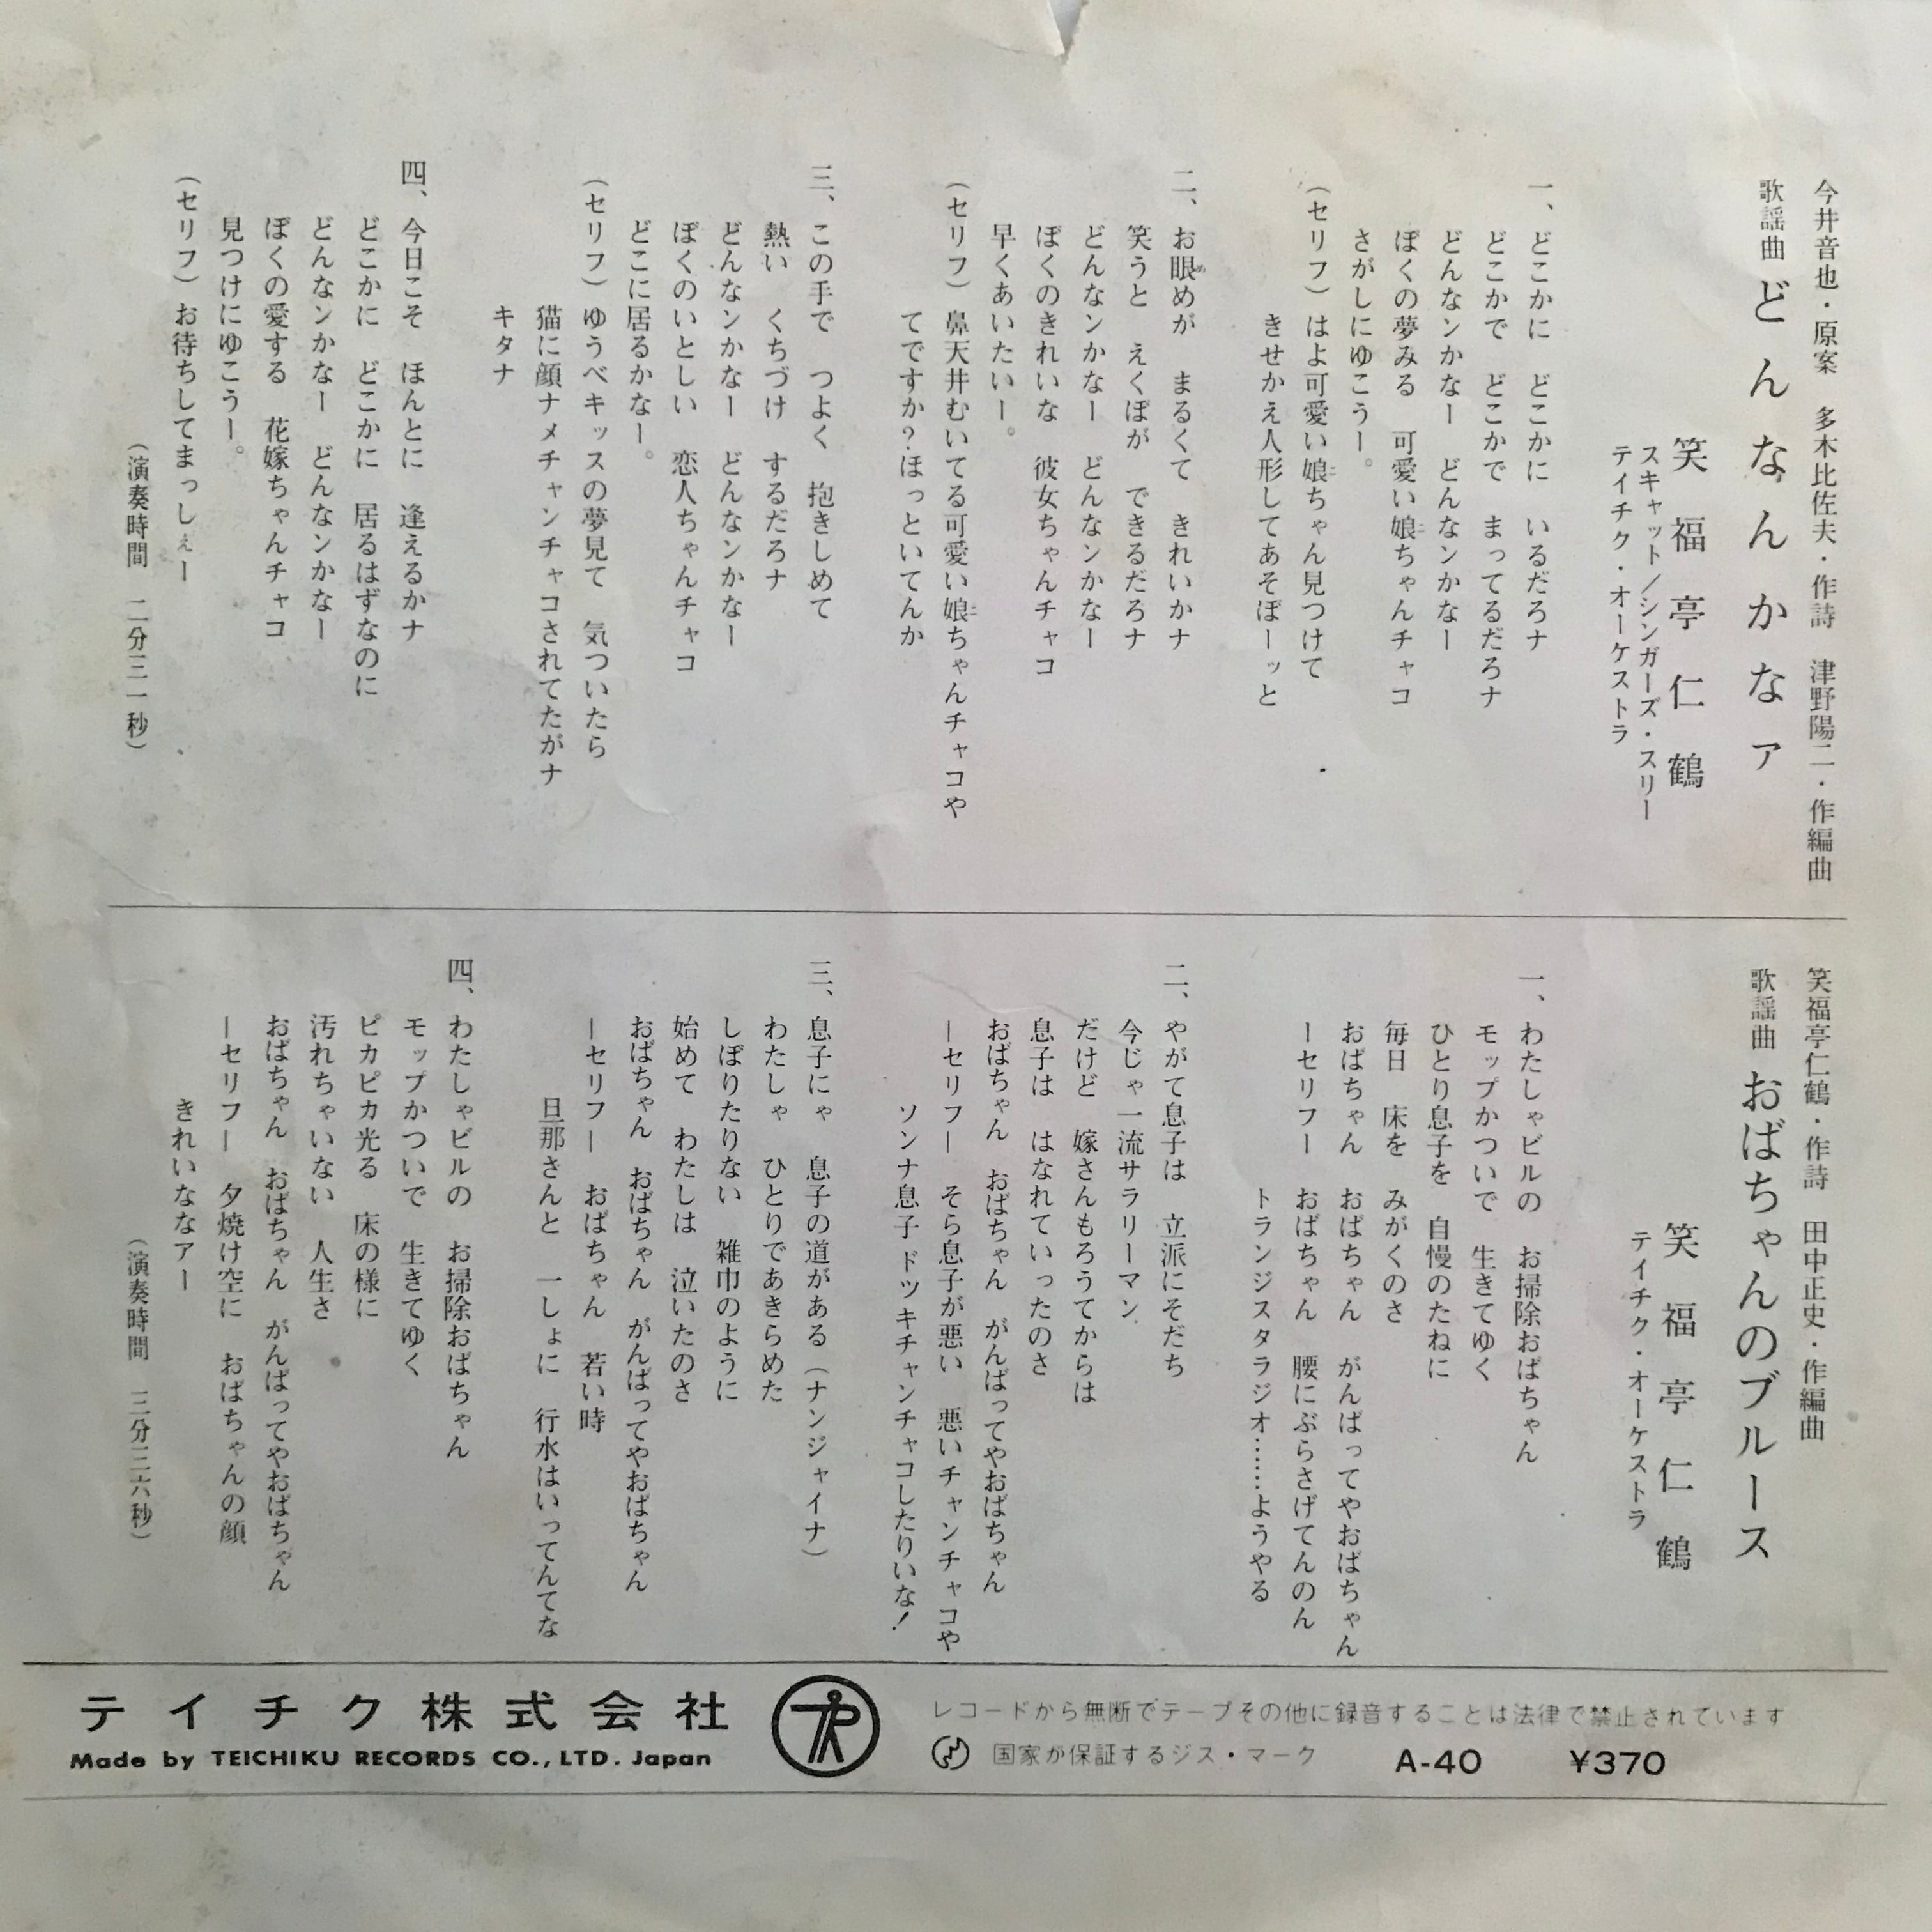 今井音也・原案　多木比佐夫・作詩　津野陽二・作編曲
歌謡曲　どんなんかなァ
笑福亭仁鶴
スキャット／シンガーズ・スリー
テイチク・オーケストラ
一、どこかに　どこかに　いるだろナ
どこかで　どこかで　まってるだろナ
どんなンかなー　どんなンかなー
ぼくの夢みる　可愛い娘ちゃんチャコ
さがしにゆこうー。
（セリフ）はよ可愛い娘ちゃん見つけて
きせかえ人形してあそぼーッと
二、お眼めが　まるくて　きれいかナ
笑うと　えくぼが　できるだろナ
どんなンかなー　どんなンかなー
ぼくのきれいな　彼女ちゃんチャコ
早くあいたいー。
（セリフ）鼻天井むいてる可愛い娘ちゃんチャコや
てですか？ほっといてんか
三、この手で　つよく　抱きしめて
熱い　くちづけ　するだろナ
どんなンかなー　どんなンかなー
ぼくのいとしい　恋人ちゃんチャコ
どこに居るかなー。
（セリフ）ゆうべキッスの夢見て　気ついたら
猫に顔ナメチャンチャコされてたがナ
キタナ
四、今日こそ　ほんとに　逢えるかナ
どこかに　どこかに　居るはずなのに
どんなンかなー　どんなンかなー
ぼくの愛する　花嫁ちゃんチャコ
見つけにゆこうー。
（セリフ）お待ちしてまっしぇー
（演奏時間　二分三一秒）
笑福亭仁鶴・作詩　田中正史・作編曲
歌謡曲　おばちゃんのブルース
笑福亭仁鶴
テイチク・オーケストラ
一、わたしゃビルの　お掃除おばちゃん
モップかついで　生きてゆく
ひとり息子を　自慢のたねに
毎日　床を　みがくのさ
おばちゃん　おばちゃん　がんばってやおばちゃん
ーセリフー　おばちゃん　腰にぶらさげてんのん
トランジスタラジオ……ようやる
二、やがて息子は　立派にそだち
今じゃ一流サラリーマン
だけど　嫁さんもろうてからは
息子は　はなれていったのさ
おばちゃん　おばちゃん　がんばってやおばちゃん
ーセリフー　そら息子が悪い　悪いチャンチャコや
ソンナ息子ドツキチャンチャコしたりいな！
三、息子にゃ　息子の道がある（ナンジャイナ）
わたしゃ　ひとりであきらめた
しぼりたりない　雑巾のように
始めて　わたしは　泣いたのさ
おばちゃん　おばちゃん　がんばってやおばちゃん
ーセリフー　おばちゃん　若い時
旦那さんと　一しょに　行水はいってんてな
四、わたしゃビルの　お掃除おばちゃん
モップかついで　生きてゆく
ピカピカ光る　床の様に
汚れちゃいない　人生さ
おばちゃん　おばちゃん　がんばってやおばちゃん
ーセリフー　夕焼け空に　おばちゃんの顔
きれいななアー
（演奏時間　三分三六秒）
テイチク株式会社
Made by TEICHIKU RECORDS CO., LTD. Japan
レコードから無断でテープその他に録音することは法律で禁止されています
国家が保証するジス・マーク　A-40　¥370